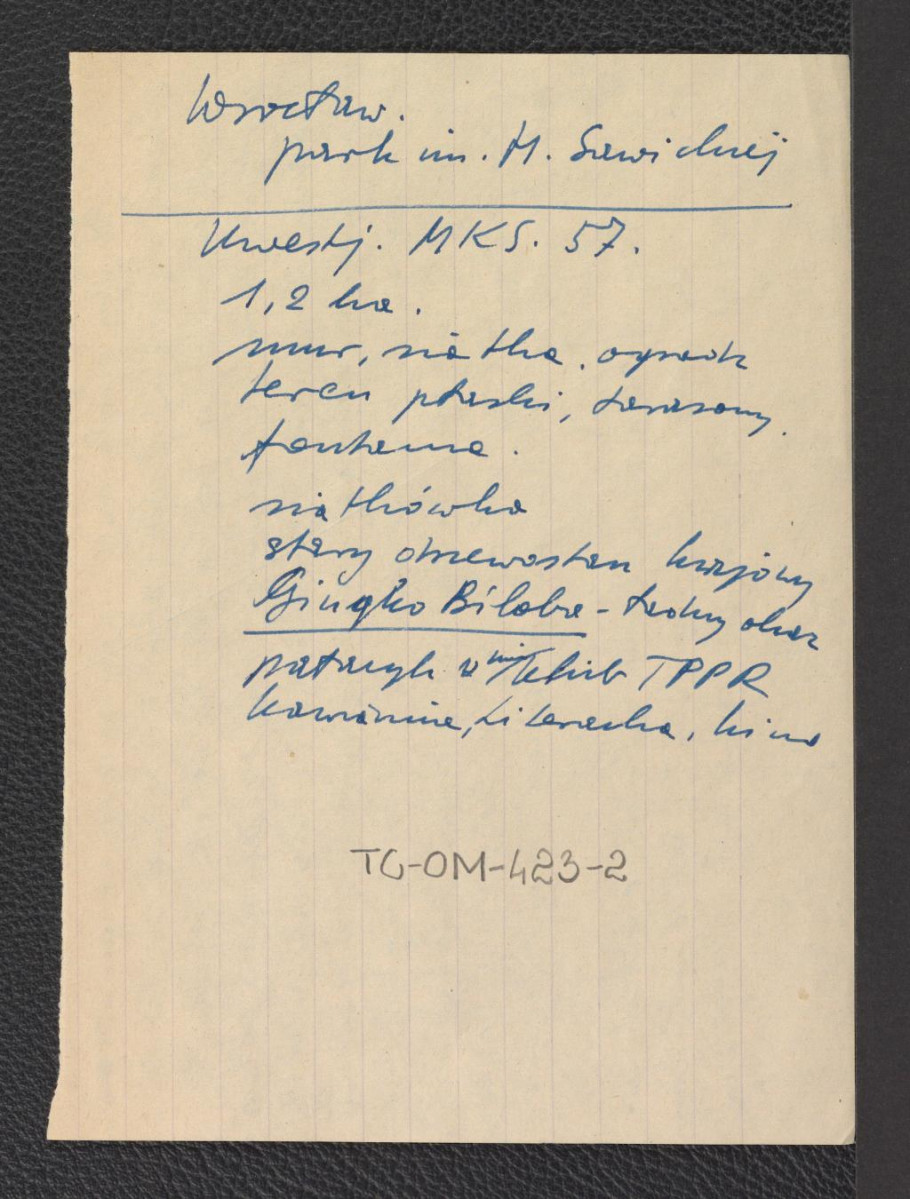 Wrocław.
park im. H. Sawickiej
MKS. 57.
1,2 ha.
mur, siatka, ogrodz
teren płaski, tarasowy.
fontanna.
siatkówka
stary drzewostan krajowy
Gingko Biloba - ładny okaz
pałacyk w nim klub TPPR
kawiarnia, kino
TG-OM-423-2